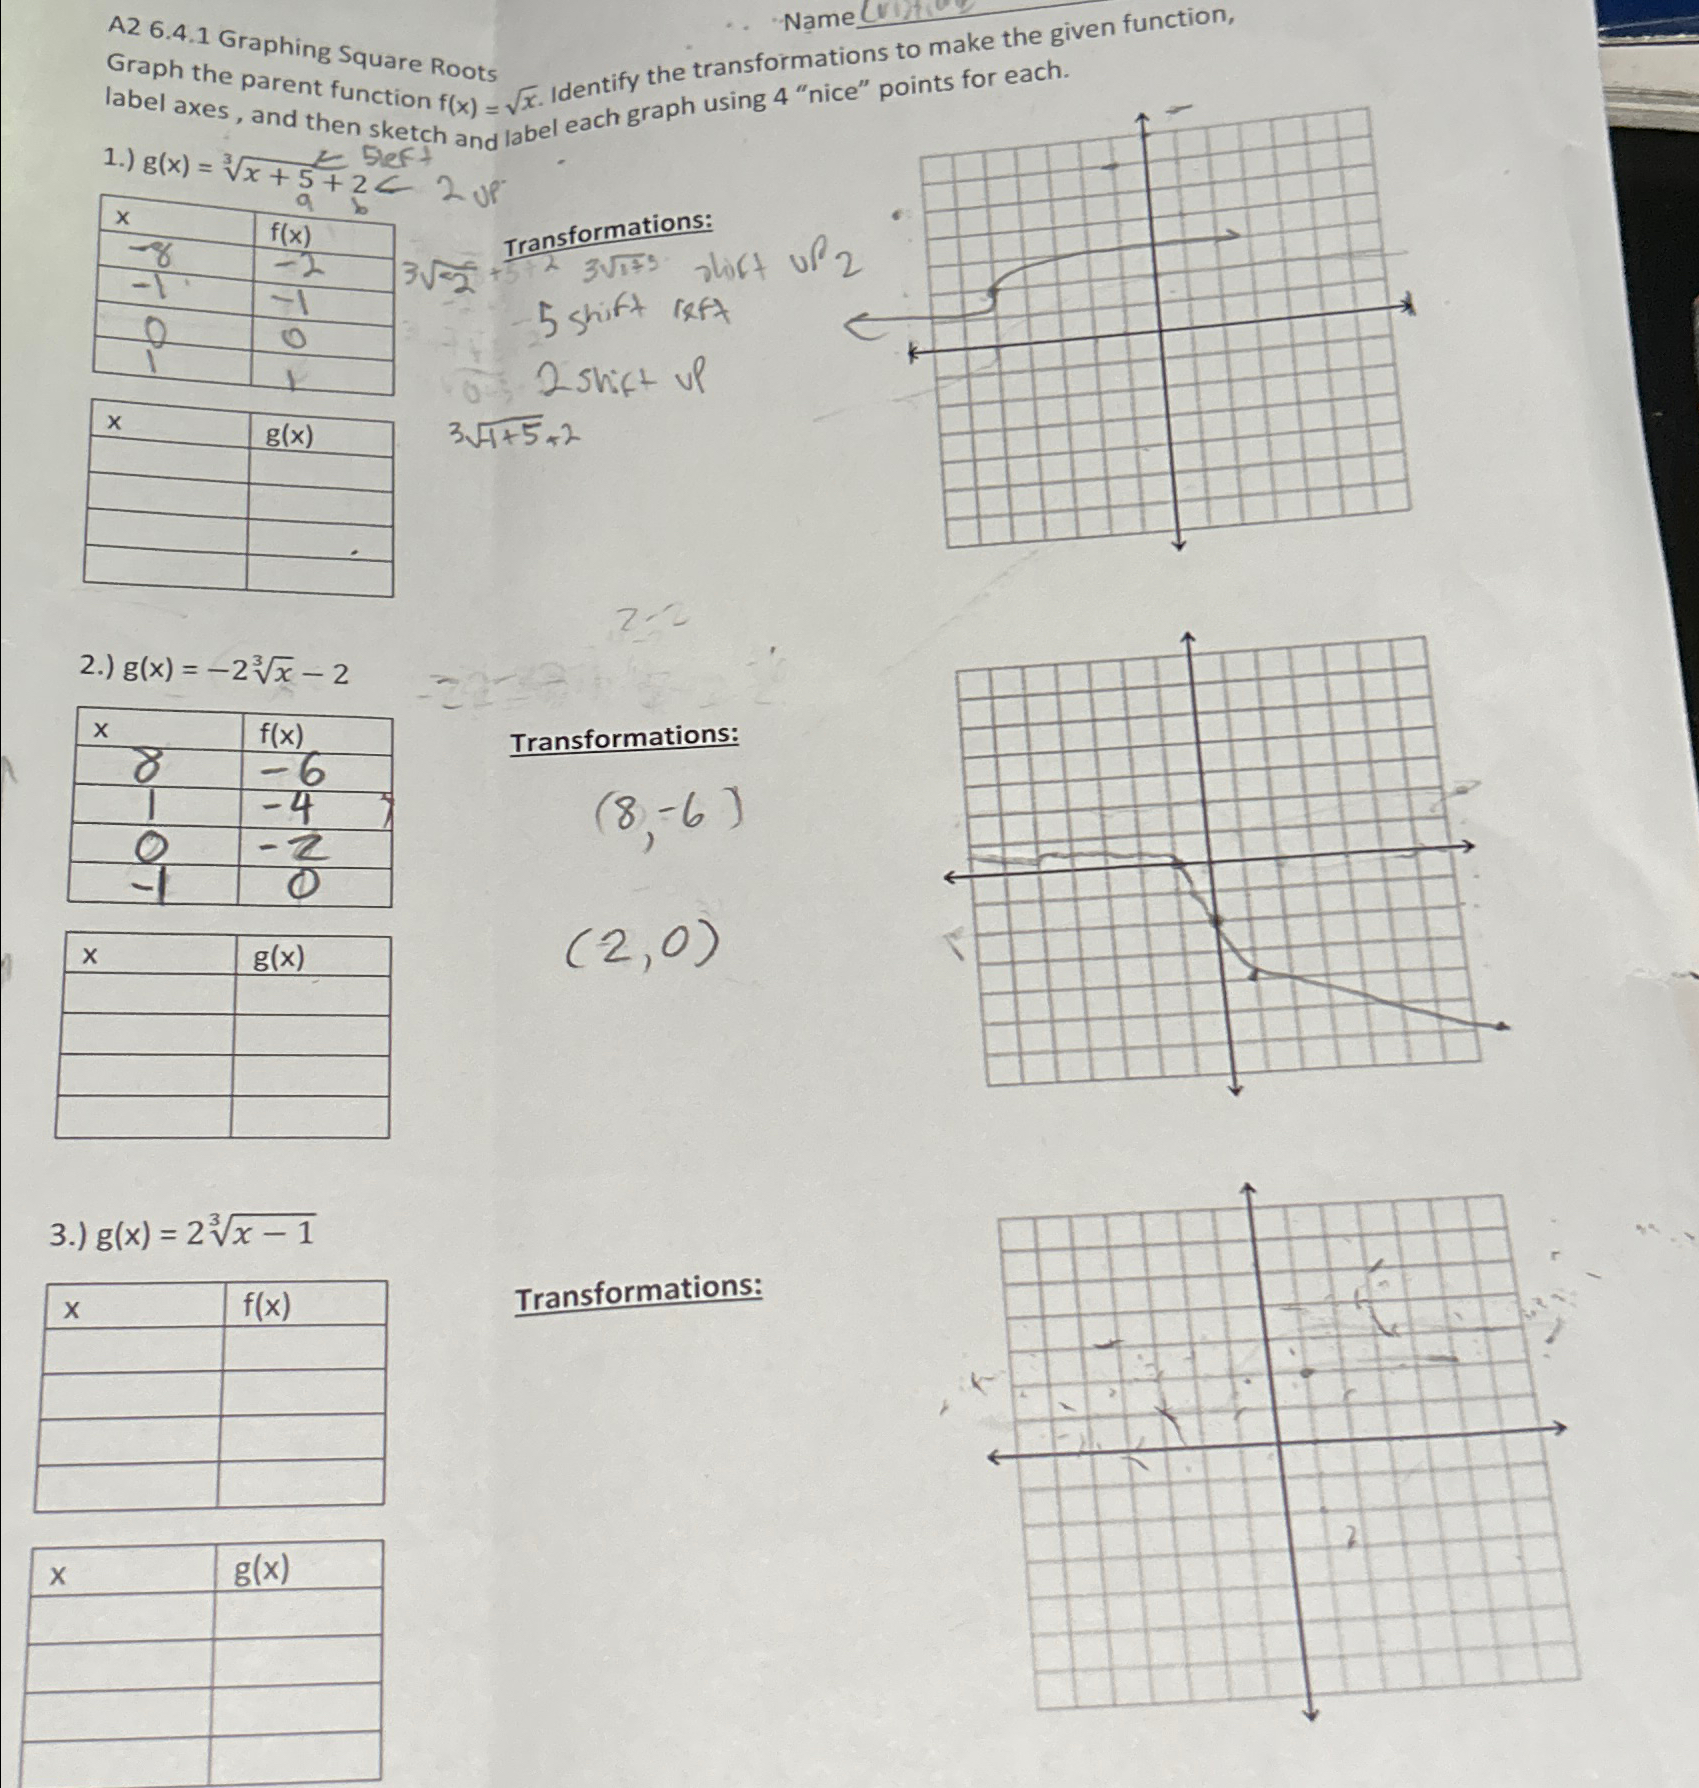 Name
A2 6.4.1 Graphing Square Roots
Graph the parent function f(x) = √x. Identify the transformations to make the given function,
label axes , and then sketch and label each graph using 4 "nice" points for each.
1.) g(x) = ∛(x + 5 + 2
← 5left
← 2 up
a b
x f(x)
-8 -2
-1 -1
0 0
1 1
Transformations:
shift up 2
5 shift left
2 shift up
3√-1+5+2
x g(x)
2.) g(x) = −2∛x − 2
x f(x)
8 -6
1 -4
0 -2
-1 0
Transformations:
(8,-6)
(2,0)
x g(x)
3.) g(x) = 2∛(x − 1)
x f(x)
Transformations:
x g(x)